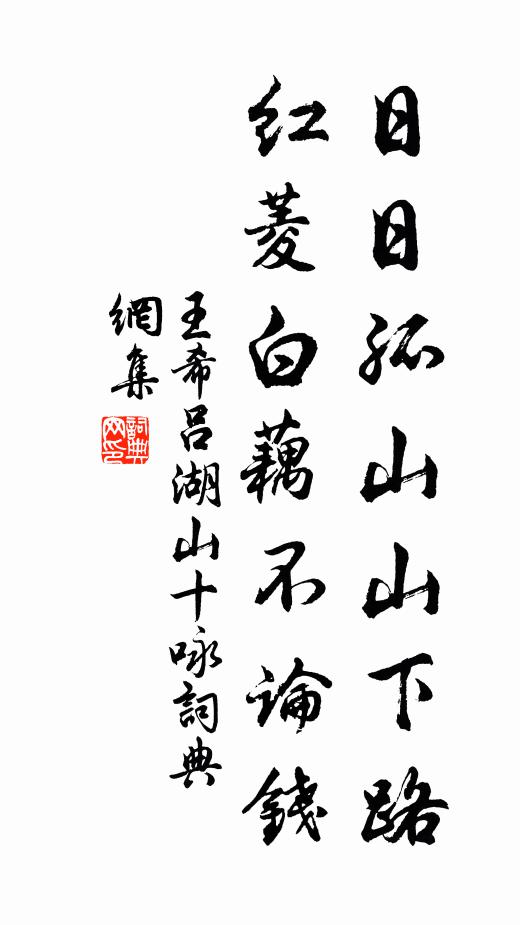 日日孤山山下路
紅菱白藕不論錢
王希呂湖山十咏詞典
網集
詞典
网印